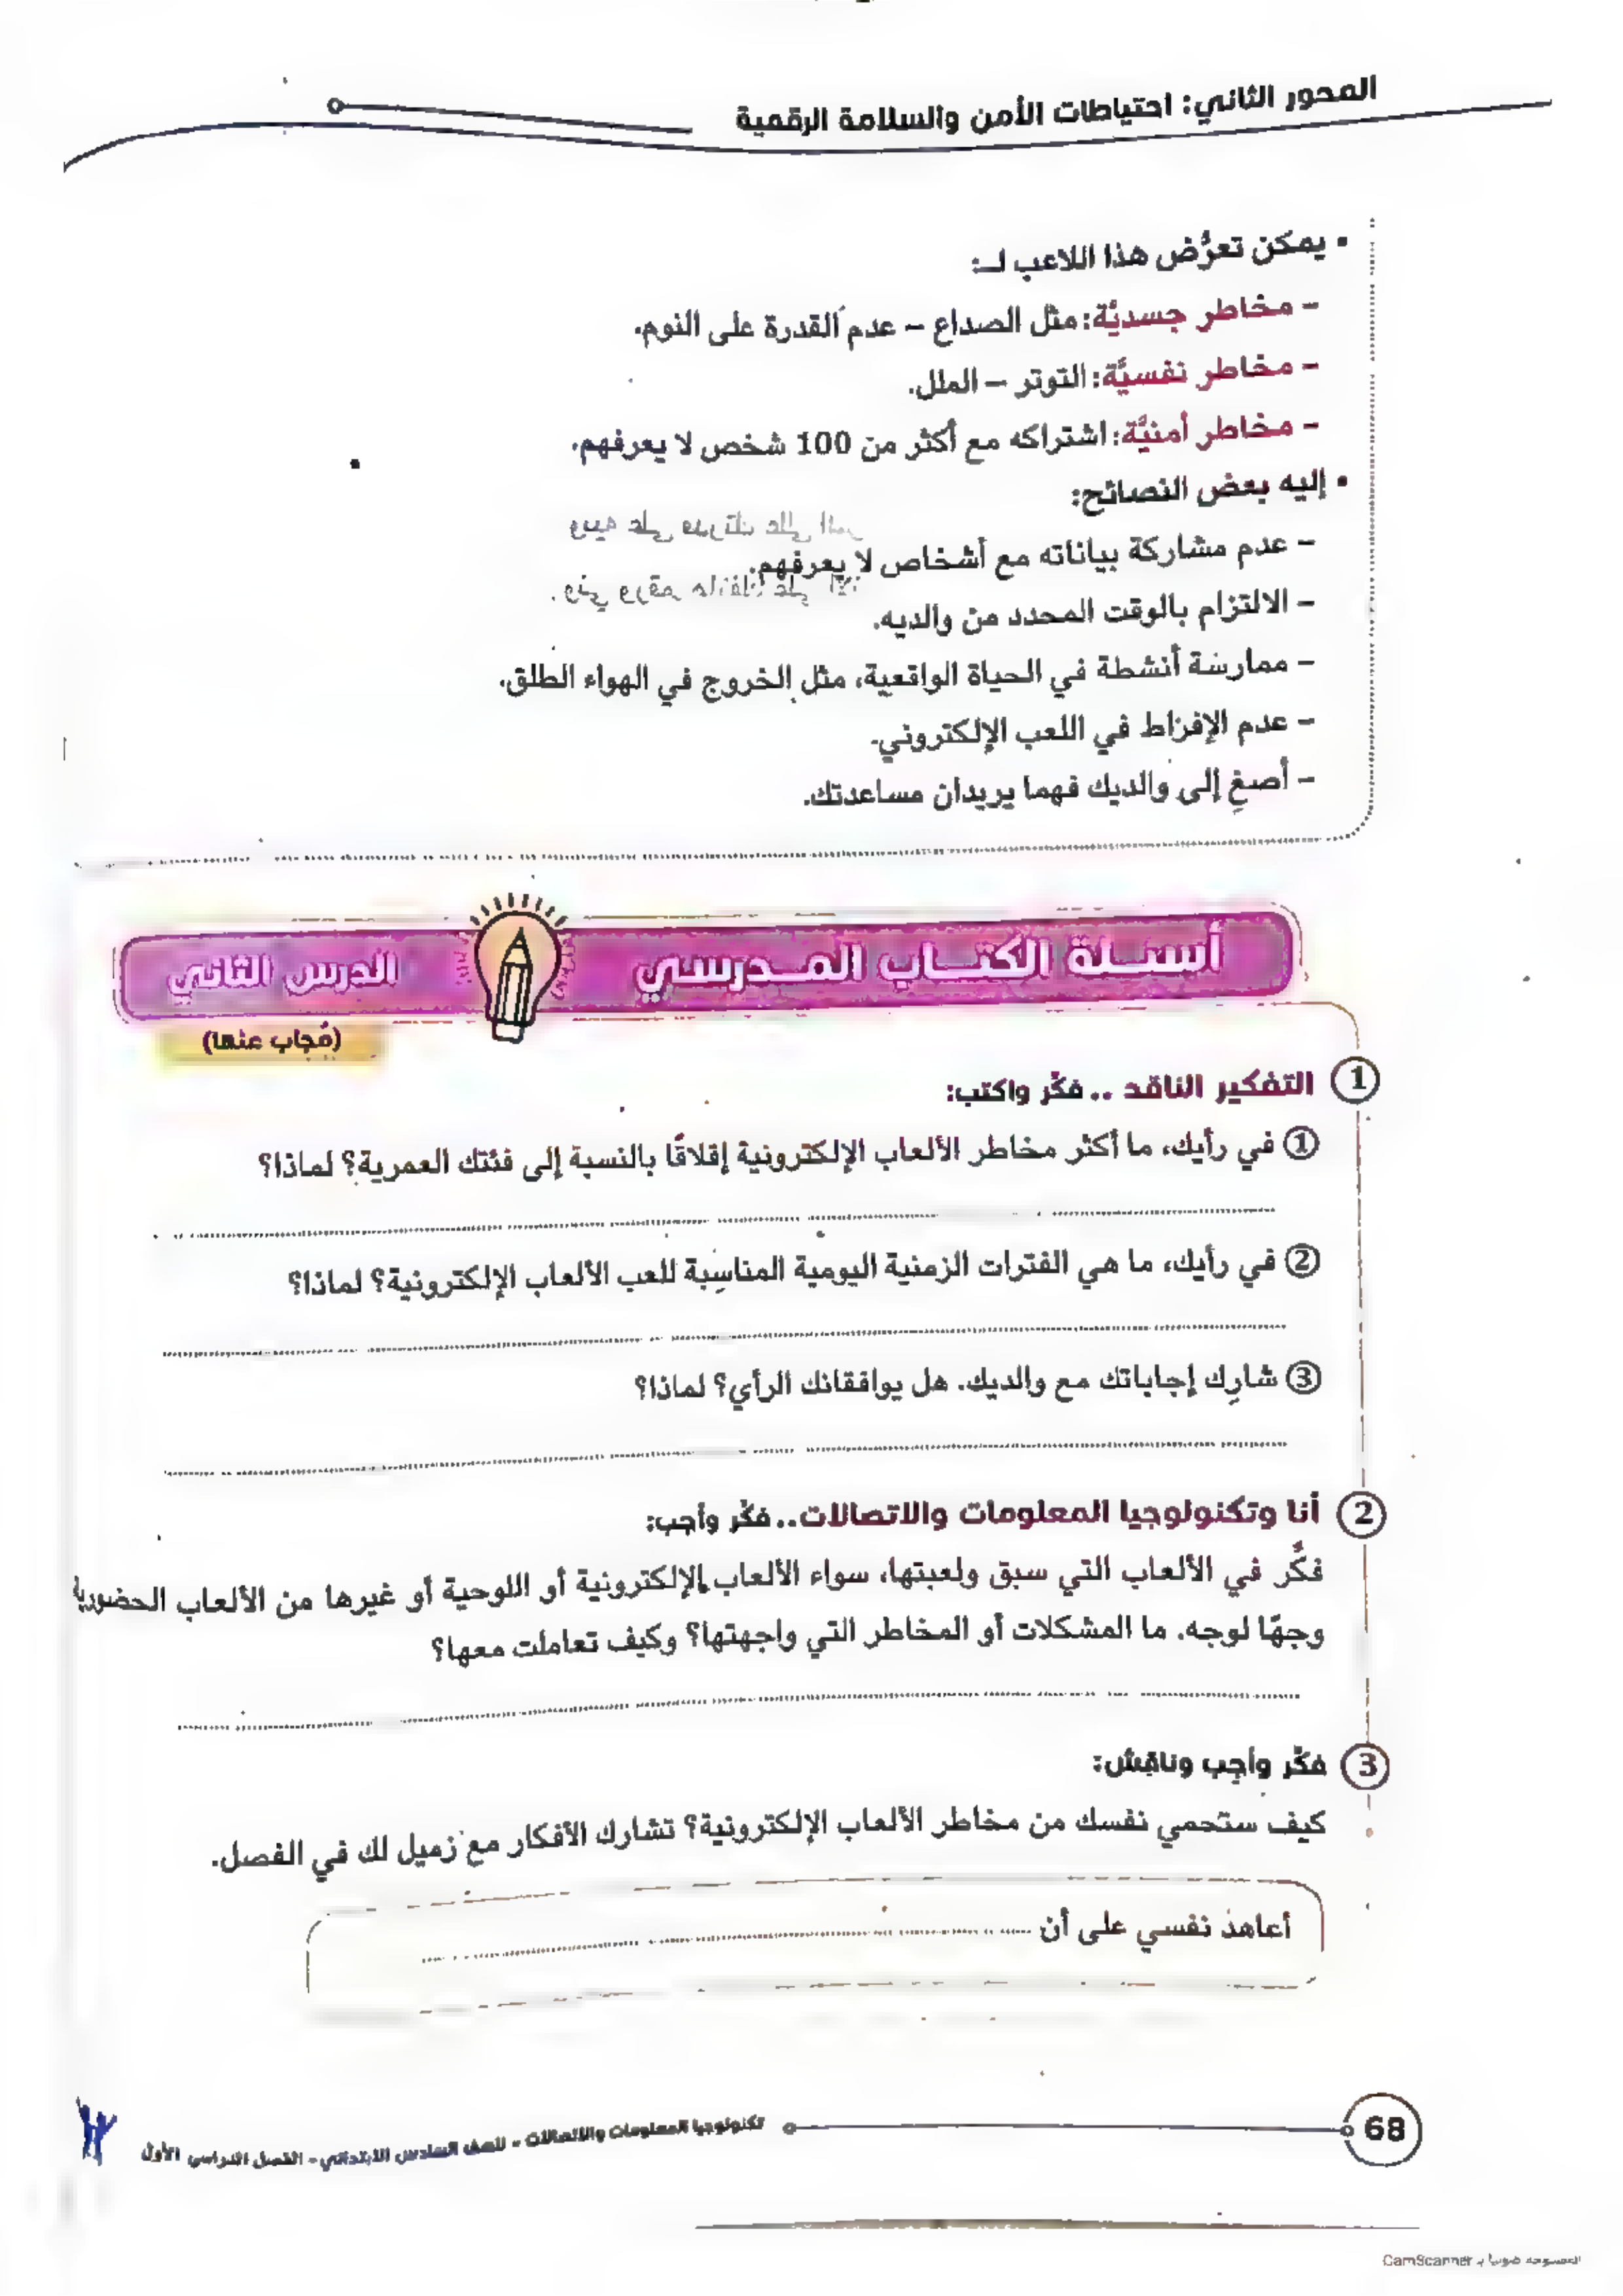 المحور الثاني: احتياطات الأمن والسلامة الرقمية
• يمكن تعرُّض هذا اللاعب لـ:
– مخاطر جسديَّة: مثل الصداع – عدم القدرة على النوم.
– مخاطر نفسيَّة: التوتر – الملل.
– مخاطر أمنيَّة: اشتراكه مع أكثر من 100 شخص لا يعرفهم.
• إليه بعض النصائح:
– عدم مشاركة بياناته مع أشخاص لا يعرفهم.
– الالتزام بالوقت المحدد من والديه.
– ممارسة أنشطة في الحياة الواقعية، مثل الخروج في الهواء الطلق.
– عدم الإفراط في اللعب الإلكتروني.
– أصغِ إلى والديك فهما يريدان مساعدتك.
أسئلة الكتاب المدرسي الدرس الثاني
(مُجاب عنها)
1 التفكير الناقد .. فكّر واكتب:
① في رأيك، ما أكثر مخاطر الألعاب الإلكترونية إقلاقًا بالنسبة إلى فئتك العمرية؟ لماذا؟
② في رأيك، ما هي الفترات الزمنية اليومية المناسِبة للعب الألعاب الإلكترونية؟ لماذا؟
③ شارِك إجاباتك مع والديك. هل يوافقانك الرأي؟ لماذا؟
2 أنا وتكنولوجيا المعلومات والاتصالات.. فكّر وأجب:
فكِّر في الألعاب التي سبق ولعبتها، سواء الألعاب الإلكترونية أو اللوحية أو غيرها من الألعاب الحضورية
وجهًا لوجه. ما المشكلات أو المخاطر التي واجهتها؟ وكيف تعاملت معها؟
3 فكّر وأجِب وناقِش:
كيف ستحمي نفسك من مخاطر الألعاب الإلكترونية؟ تشارك الأفكار مع زميل لك في الفصل.
أعاهد نفسي على أن
68 تكنولوجيا المعلومات والاتصالات - للصف السادس الابتدائي - الفصل الدراسي الأول
الممسوحة ضوئيا بـ CamScanner